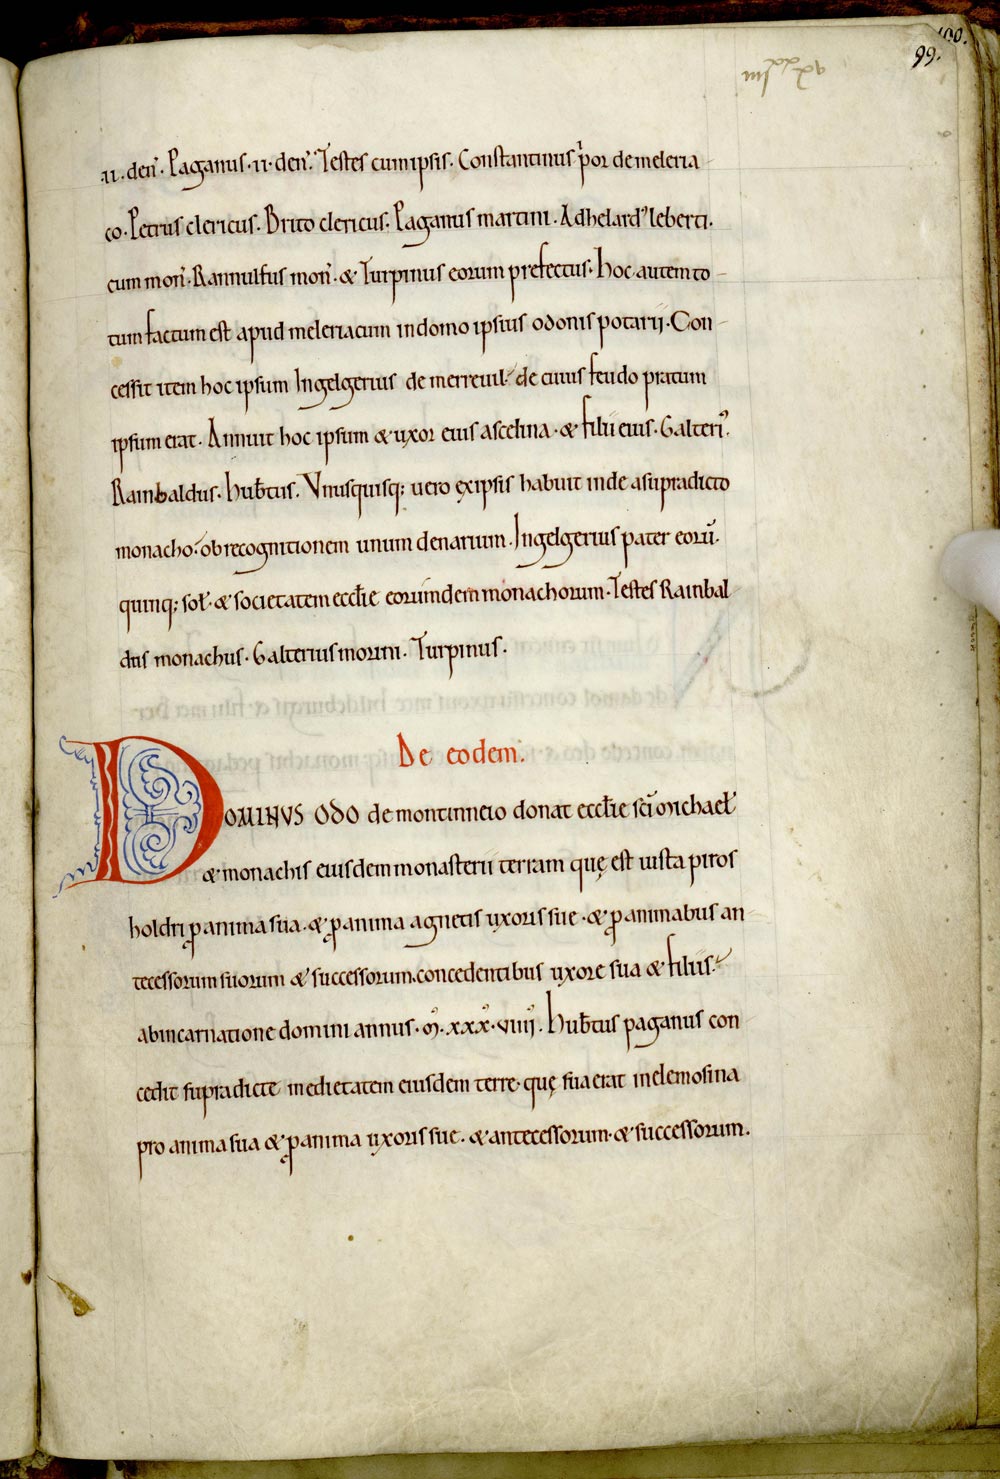 100.
99.
.II. den̄. Paganus. II. den̄. Testes cum ipsis. Constantinus p̓or de meleria
co. Petrus clericus. Brito clericus. Paganus martini. Adhelard᾽ leberti.
cum mon̄. Rannulfus mon̄. & Turpinus eorum prefectus. hoc autem to
tum factum est apud meleriacum in domo ipsius odonis potarii. Con
cessit item hoc ipsum Ingelgerius de merreuil. de cuius feudo pratum
ipsum erat. Annuit hoc ipsum & uxor eius ascelina. & filii eius. Galteri᾽.
Rainbaldus. hub̄tus. Vnusquisq; uero ex ipsis habuit inde a supradicto
monacho. ob recognitionem unum denarium. Ingelgerius pater eorū.
quinq; sol̄. & societatem eccl̄ie eorumdem monachorum. Testes Rainbal
dus monachus. Galterius morini. Turpinus.
De eodem.
DOMINUS ODO de montinneio donat eccl̄ie sc̄i Michael̄
& monachis eiusdem monasterii terram quę est iusta piros
holdri ꝓ anima sua. & ꝓ anima agnetis uxoris sue. & ꝓ animabus an
tecessorum suorum & successorum. concedentibus uxore sua & filiis.
ab incarnatione domini annus. M᾽. xxx᾽. viiij᾽. hub̄tus paganus con
cedit supradicte medietatem eiusdem terre. quę sua erat in elemosina
pro anima sua & ꝓ anima uxoris sue. & antecessorum. & successorum.